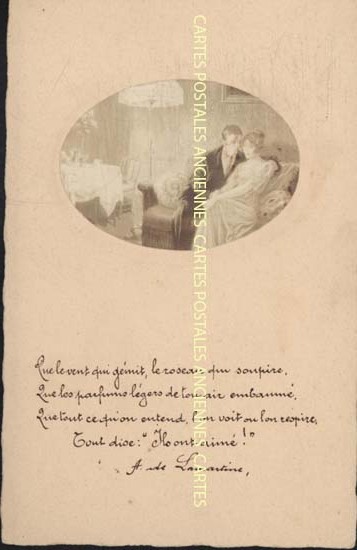 CARTES POSTALES ANCIENNES CARTES POSTALES ANCIENNES CARTES
Que le vent qui gémit, le roseau qui soupire,
Que les parfums légers de ton air embaumé,
Que tout ce qu'on entend, l'on voit ou l'on respire,
Tout dise: "Ils ont aimé!"
A. de Lamartine,